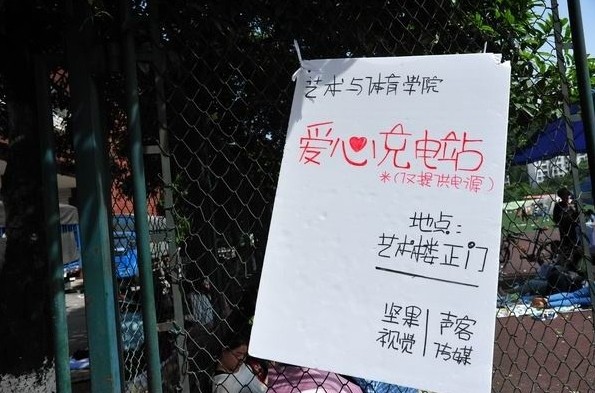 艺术与体育学院
爱心充电站
*(仅提供电源)
地点:
艺术楼正门
坚果 | 声客
视觉 | 传媒